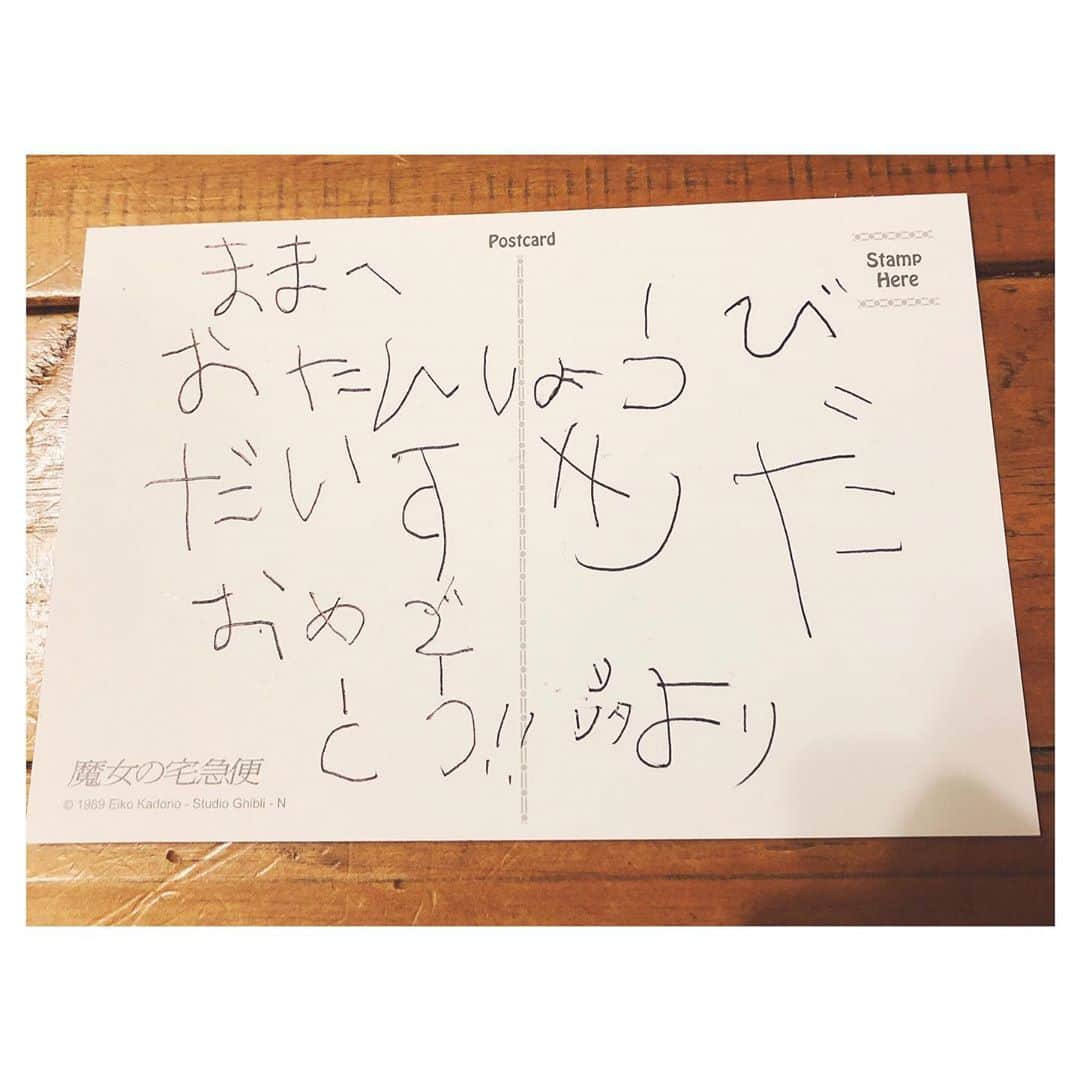 Postcard
Stamp
Here
ままへ
おたんしょうび
だいすきだ
おめで
とう!!
より
魔女の宅急便
© 1989 Eiko Kadono - Studio Ghibli - N